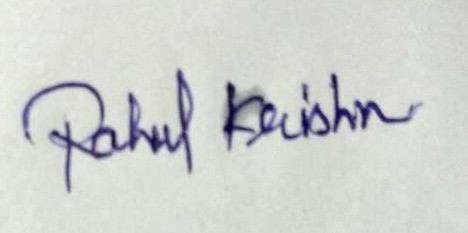 Rahul Krishn